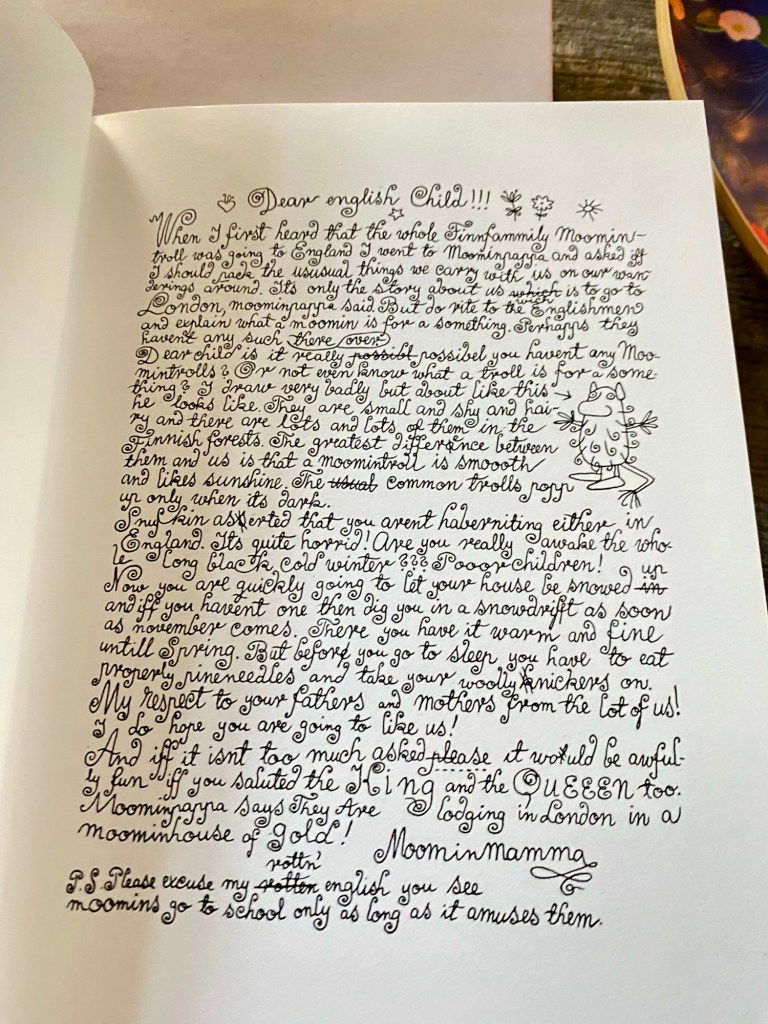 Dear english Child!!!
When I first heard that the whole Finnfammily Moomin-
troll was going to England I went to Moominpappa and asked iff
I should pack the ususual things we carry with us on our wan
derings around. Its only the story about us which is to go to
London, moominpappa said. But do rite to the Englishmen
and explain what a moomin is for a something. Perhapps they
havent any such there over
Dear child is it really possibl possibel you havent any Moo-
mintrolls? Or not even know what a troll is for a some-
thing? I draw very badly but about like this →
he looks like. They are small and shy and hai-
ry and there are lots and lots of them in the
Finnish forests. The greatest difference between
them and us is that a moomintroll is smoooth
and likes sunshine. The usual common trolls popp
up only when its dark.
Snufkin asserted that you arent haberniting either in
England. Its quite horrid! Are you really awake the who-
le long black cold winter??? Pooor children!
Now you are quickly going to let your house be snowed in up
and iff you havent one then dig you in a snowdrift as soon
as november comes. There you have it warm and fine
untill Spring. But before you go to sleep you have to eat
properly pineneedles and take your woolly knickers on.
My respect to your fathers and mothers from the lot of us!
I do hope you are going to like us!
And iff it isnt too much asked please it would be awful-
ly fun iff you saluted the King and the QUEEEN too.
Moominpappa Says They Are lodging in London in a
moominhouse of gold!
MoominMamma
P.S. Please excuse my rotten rottn' english you see
moomins go to school only as long as it amuses them.